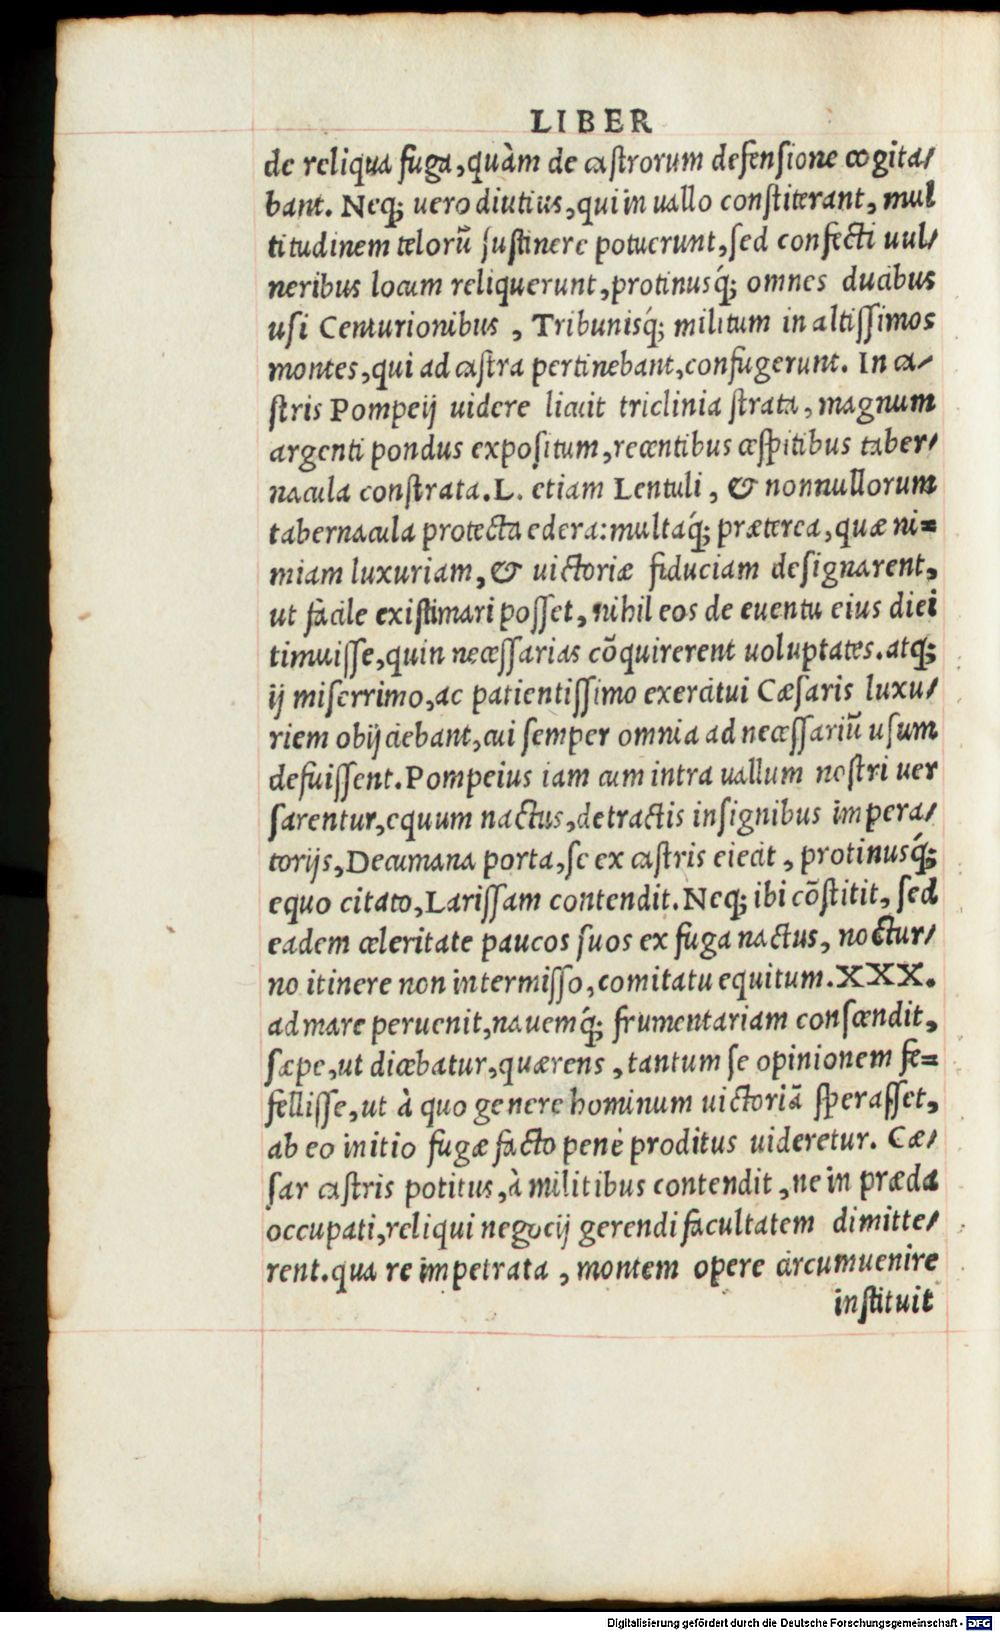 LIBER
de reliqua fuga, quàm de castrorum defensione cogita/
bant. Neq; uero diutius, qui in uallo constiterant, mul
titudinem telorũ sustinere potuerunt, sed confecti uul/
neribus locum reliquerunt, protinusq́; omnes ducibus
usi Centurionibus , Tribunisq́; militum in altissimos
montes, qui ad castra pertinebant, confugerunt. In ca/
stris Pompeij uidere licuit triclinia strata, magnum
argenti pondus expositum, recentibus cæspitibus taber/
nacula constrata. L. etiam Lentuli , & nonnullorum
tabernacula protecta edera: multaq́; præterea, quæ ni=
miam luxuriam, & uictoriæ fiduciam designarent,
ut facile existimari posset, nihil eos de euentu eius diei
timuisse, quin necessarias cõquirerent uoluptates. atq;
ij miserrimo, ac patientissimo exercitui Cæsaris luxu/
riem obijciebant, cui semper omnia ad necessariũ usum
defuissent. Pompeius iam cum intra uallum nostri uer
sarentur, equum nactus, detractis insignibus impera/
torijs, Decumana porta, se ex castris eiecit , protinusq́;
equo citato, Larissam contendit. Neq; ibi cõstitit, sed
eadem celeritate paucos suos ex fuga nactus, noctur/
no itinere non intermisso, comitatu equitum. XXX.
ad mare peruenit, nauemq́; frumentariam conscendit,
sæpe, ut dicebatur, quærens , tantum se opinionem fe=
fellisse, ut à quo genere hominum uictoriã sperasset,
ab eo initio fugæ facto penè proditus uideretur. Cæ/
sar castris potitus, à militibus contendit , ne in præda
occupati, reliqui negocij gerendi facultatem dimitte/
rent. qua re impetrata , montem opere circumuenire
instituit
Digitalisierung gefördert durch die Deutsche Forschungsgemeinschaft - DFG